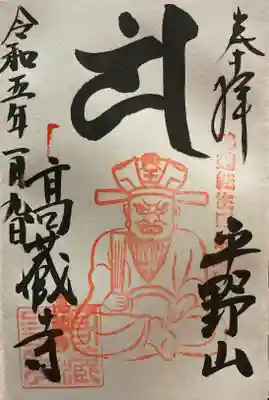 奉拝
平野山
高蔵寺
令和五年一月九日